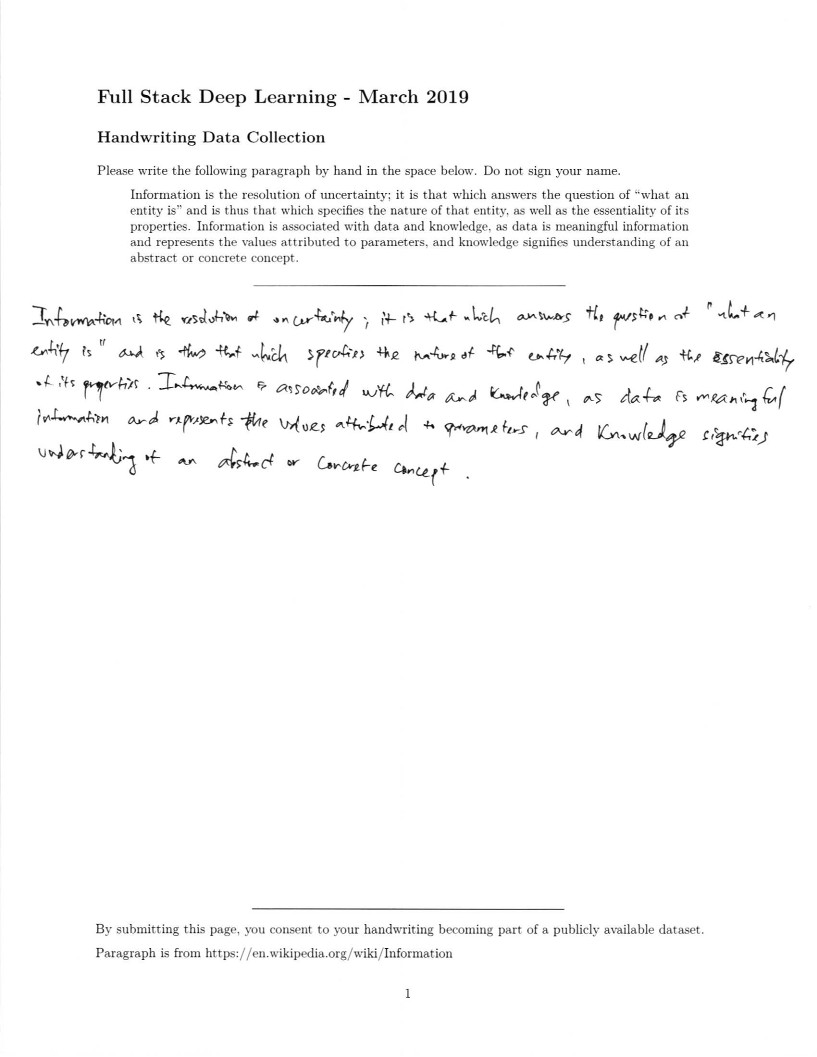 Full Stack Deep Learning - March 2019
Handwriting Data Collection
Please write the following paragraph by hand in the space below. Do not sign your name.
Information is the resolution of uncertainty; it is that which answers the question of “what an
entity is” and is thus that which specifies the nature of that entity, as well as the essentiality of its
properties. Information is associated with data and knowledge, as data is meaningful information
and represents the values attributed to parameters, and knowledge signifies understanding of an
abstract or concrete concept.
Information is the resolution of uncertainty ; it is that which answers the question of "what an
entity is" and is thus that which specifies the nature of that entity , as well as the essentiality
of its properties . Information is associated with data and knowledge , as data is meaningful
information and represents the values attributed to parameters , and knowledge signifies
understanding of an abstract or concrete concept .
By submitting this page, you consent to your handwriting becoming part of a publicly available dataset.
Paragraph is from https://en.wikipedia.org/wiki/Information
1